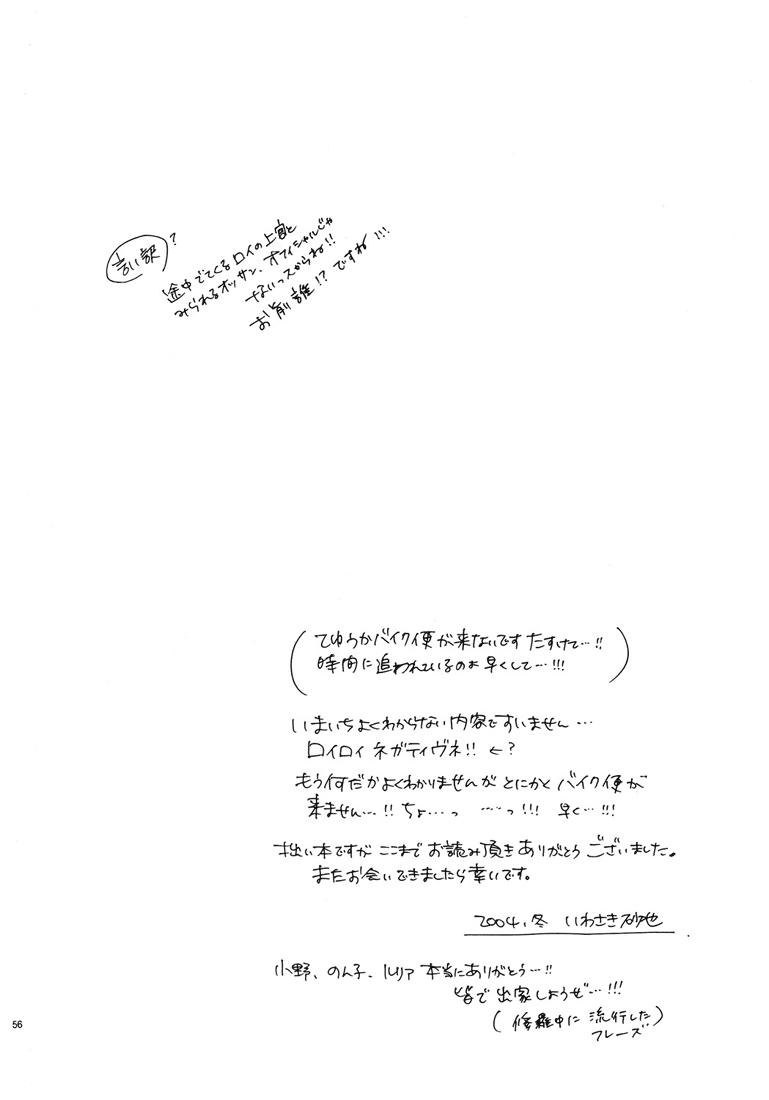 言い訳?
途中でてくるロイの上官と
みられるオッサン、オフィシャルじゃ
ないっスからね!!
お前誰!?ですね!!!
(てゆうかバイク便が来ないです たすけて…!!
時間に追われているのお 早くして…!!!)
いまいちよくわからない内容ですいません…
ロイロイ ネガティヴネ!! ←?
もう何だかよくわかりませんが とにかく バイク便が
来ません…!! ちょ…っ ……っ!!! 早く…!!!
拙い本ですが ここまで お読み頂き ありがとう ございました。
またお会いできましたら幸いです。
2004.冬 いわさき砂也
小野、のん子、ルリア 本当にありがとう…!!
皆で 出家しようぜ…!!!
(修羅中に 流行した
フレーズ)
56